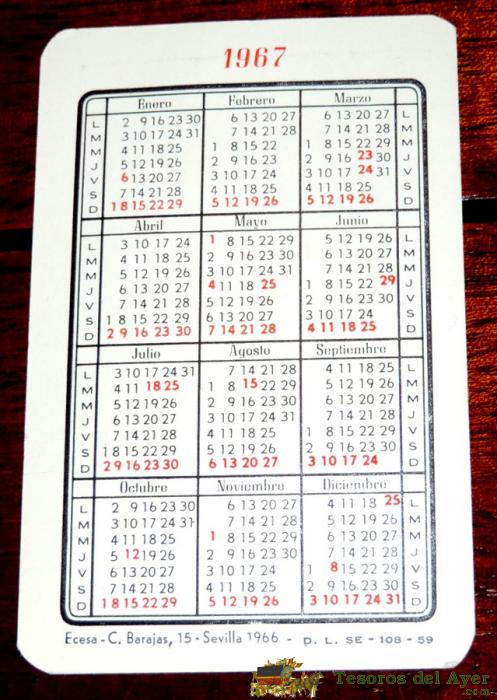 1967
Enero Febrero Marzo
L 2 9 16 23 30 6 13 20 27 6 13 20 27 L
M 3 10 17 24 31 7 14 21 28 7 14 21 28 M
M 4 11 18 25 1 8 15 22 1 8 15 22 29 M
J 5 12 19 26 2 9 16 23 2 9 16 23 30 J
V 6 13 20 27 3 10 17 24 3 10 17 24 31 V
S 7 14 21 28 4 11 18 25 4 11 18 25 S
D 1 8 15 22 29 5 12 19 26 5 12 19 26 D
Abril Mayo Junio
L 3 10 17 24 1 8 15 22 29 5 12 19 26 L
M 4 11 18 25 2 9 16 23 30 6 13 20 27 M
M 5 12 19 26 3 10 17 24 31 7 14 21 28 M
J 6 13 20 27 4 11 18 25 1 8 15 22 29 J
V 7 14 21 28 5 12 19 26 2 9 16 23 30 V
S 1 8 15 22 29 6 13 20 27 3 10 17 24 S
D 2 9 16 23 30 7 14 21 28 4 11 18 25 D
Julio Agosto Septiembre
L 3 10 17 24 31 7 14 21 28 4 11 18 25 L
M 4 11 18 25 1 8 15 22 29 5 12 19 26 M
M 5 12 19 26 2 9 16 23 30 6 13 20 27 M
J 6 13 20 27 3 10 17 24 31 7 14 21 28 J
V 7 14 21 28 4 11 18 25 1 8 15 22 29 V
S 1 8 15 22 29 5 12 19 26 2 9 16 23 30 S
D 2 9 16 23 30 6 13 20 27 3 10 17 24 D
Octubre Noviembre Diciembre
L 2 9 16 23 30 6 13 20 27 4 11 18 25 L
M 3 10 17 24 31 7 14 21 28 5 12 19 26 M
M 4 11 18 25 1 8 15 22 29 6 13 20 27 M
J 5 12 19 26 2 9 16 23 30 7 14 21 28 J
V 6 13 20 27 3 10 17 24 1 8 15 22 29 V
S 7 14 21 28 4 11 18 25 2 9 16 23 30 S
D 1 8 15 22 29 5 12 19 26 3 10 17 24 31 D
Ecesa - C. Barajas, 15 - Sevilla 1966 - D. L. SE - 108 - 59
Tesoros del Ayer
.com